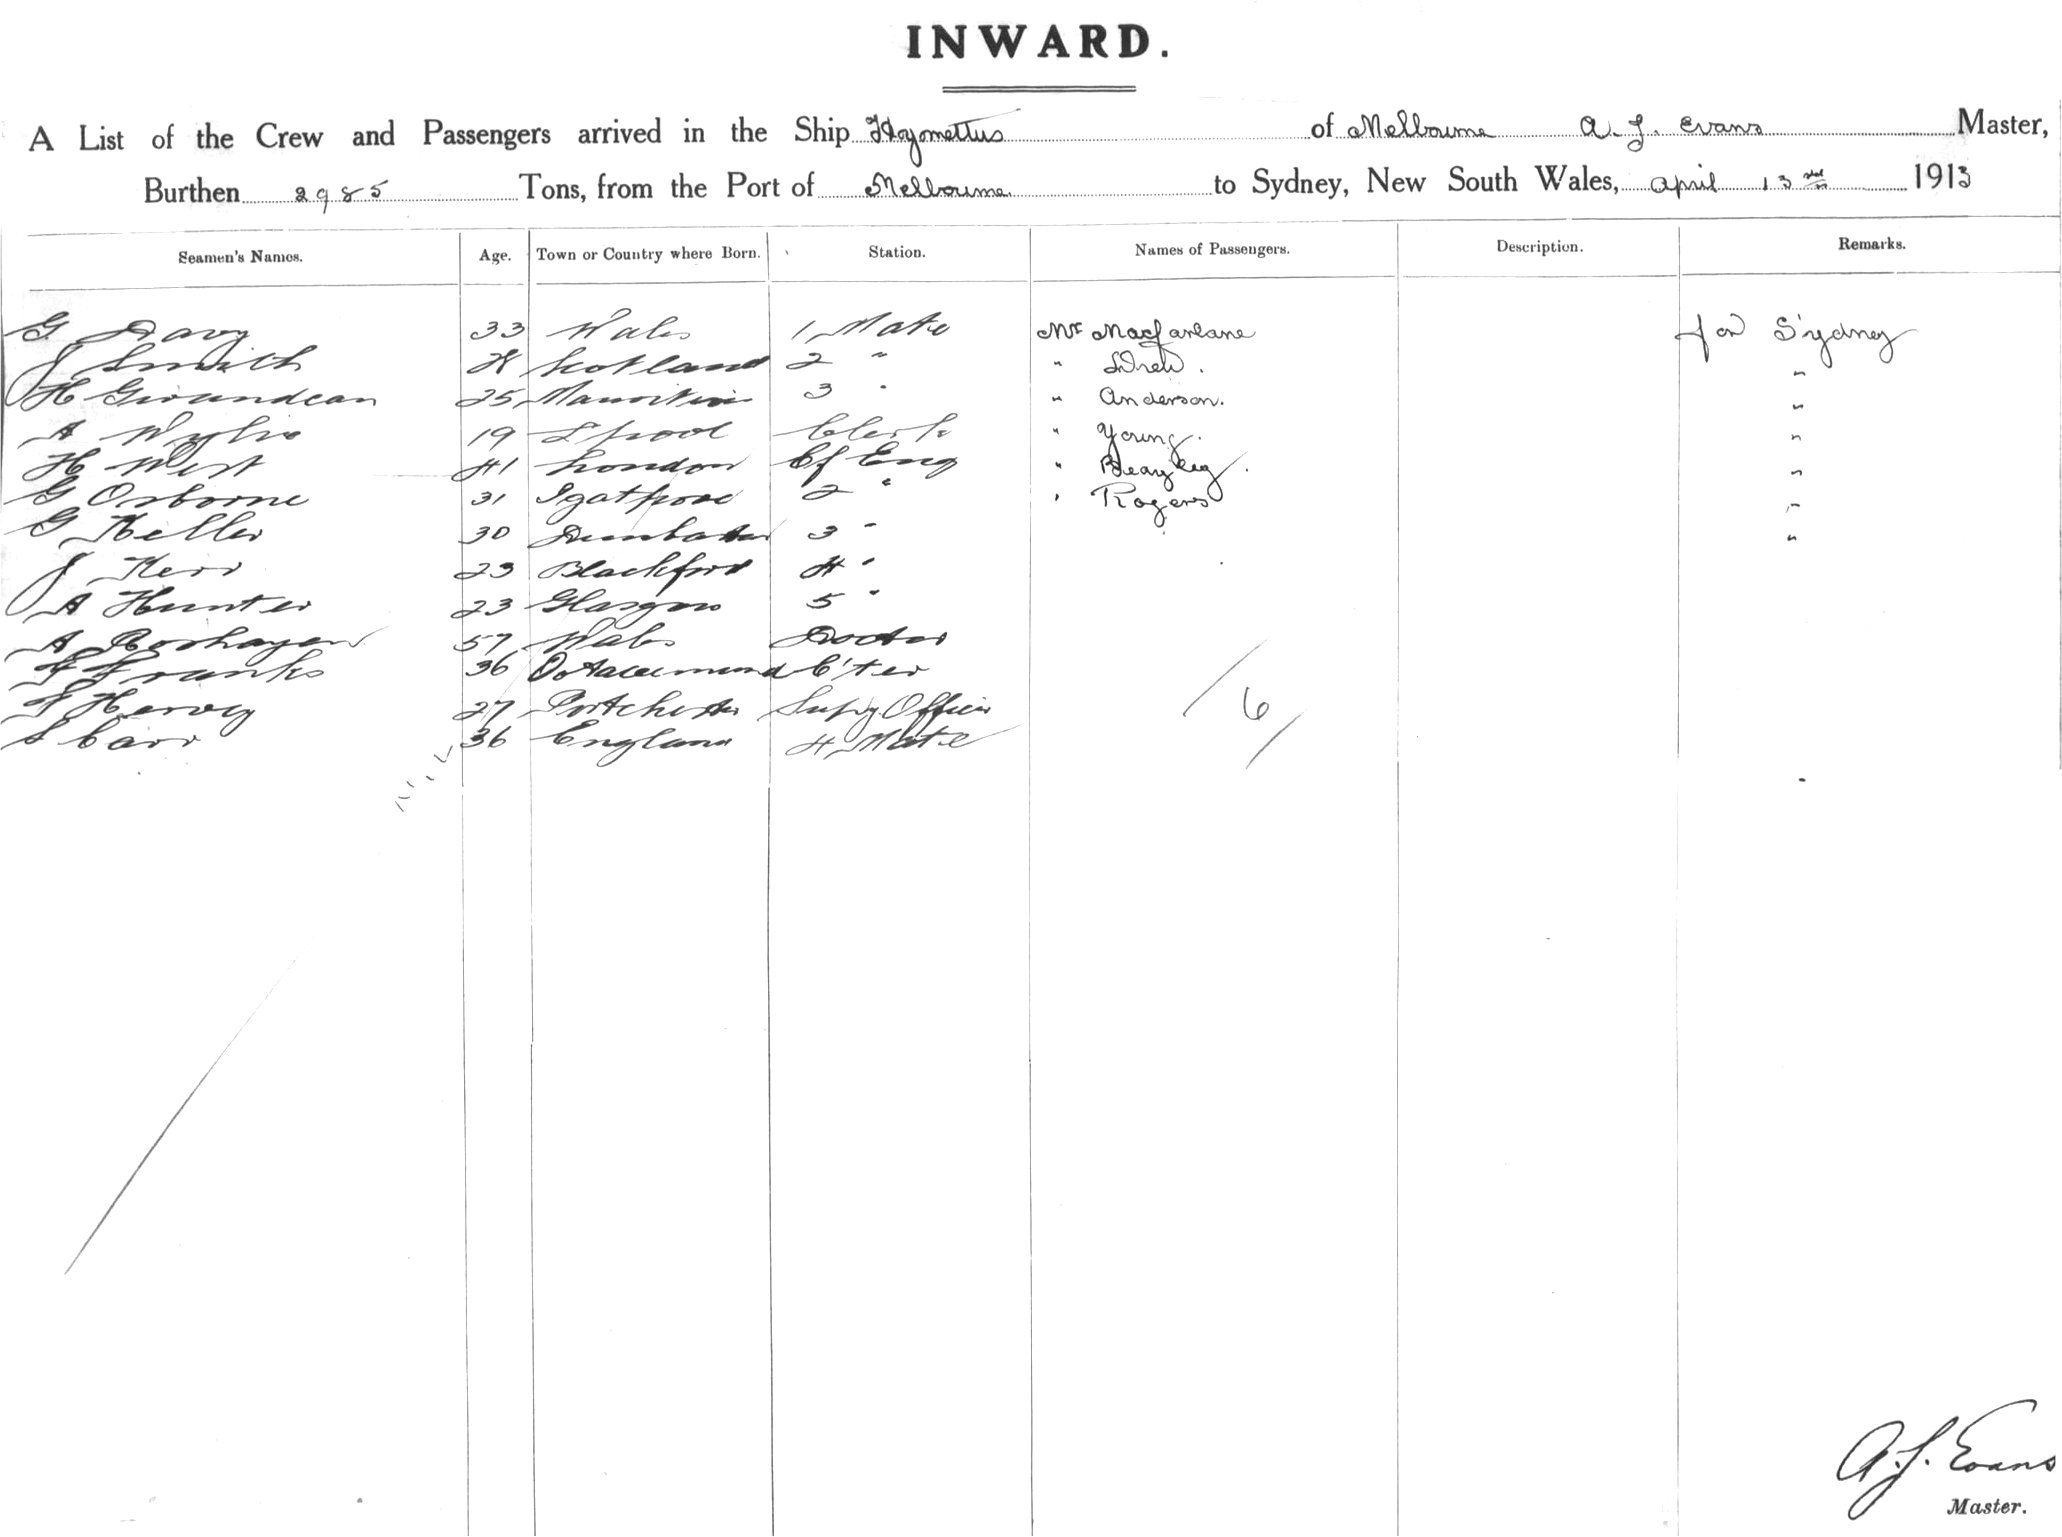 INWARD.
A List of the Crew and Passengers arrived in the Ship Hymettus of Melbourne A. J. Evans Master,
Burthen 2985 Tons, from the Port of Melbourne to Sydney, New South Wales, April 13th 1913
Seamen's Names. Age. Town or Country where Born. Station. Names of Passengers. Description. Remarks.
G Davy 33 Wales 1 Mate Mr Macfarlane for Sydney
J Smith Scotland 2 " " Drew. "
H Giroundean 25 Mauritius 3 " " Anderson. "
A Wylie 19 L'pool Clerk " Young. "
H West 41 London Cf Eng " Beazley. "
G Osborne 31 Igatpore 2 " " Rogers "
G Keller 30 3 " "
J Kerr 23 Blackford 4 "
A Hunter 23 Glasgow 5 "
A 57 Wales Doctor
F Franks 36 C'ter
F Hervey 27 Portchester Supy Officer
S Carr 36 England 4 Mate
6
A. J. Evans
Master.